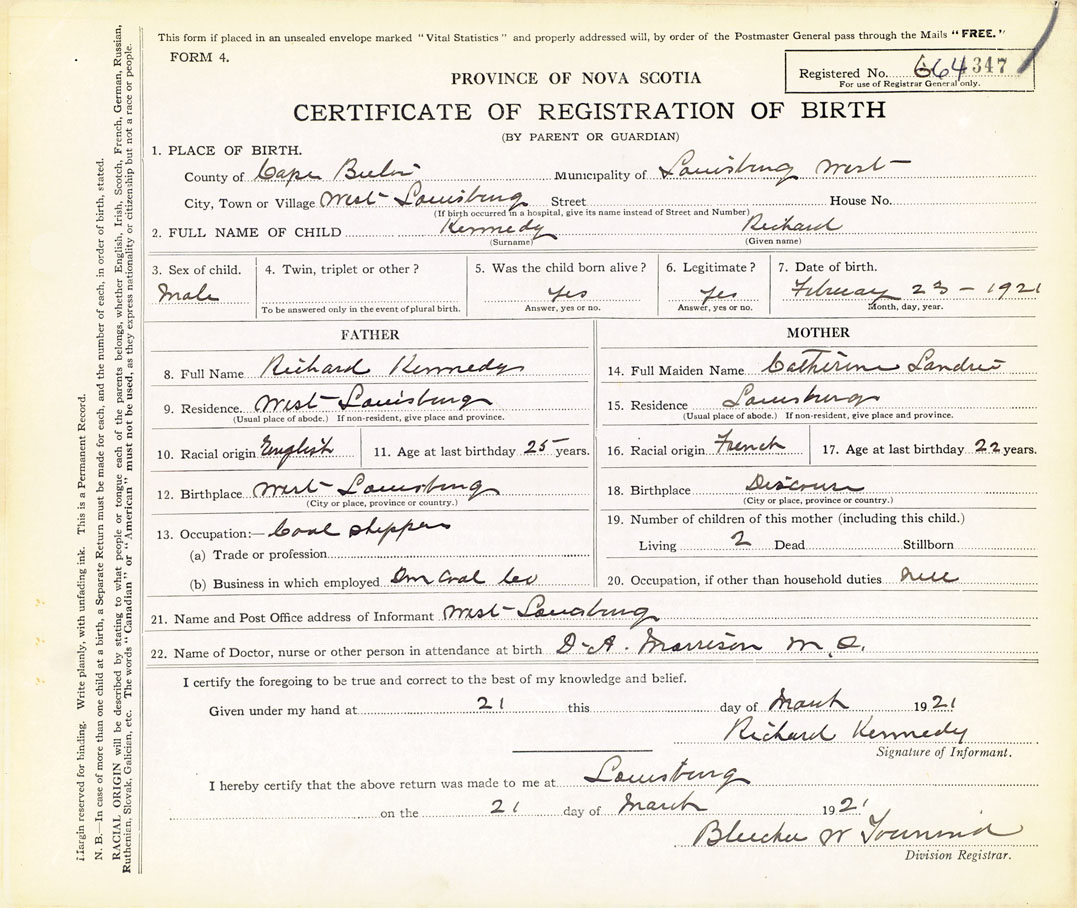 This form if placed in an unsealed envelope marked "Vital Statistics" and properly addressed will, by order of the Postmaster General pass through the Mails "FREE."
FORM 4.
Registered No. 664347
For use of Registrar General only.
PROVINCE OF NOVA SCOTIA
CERTIFICATE OF REGISTRATION OF BIRTH
(BY PARENT OR GUARDIAN)
1. PLACE OF BIRTH.
County of Cape Breton Municipality of Louisburg West
City, Town or Village West Louisburg Street House No.
(If birth occurred in a hospital, give its name instead of Street and Number)
2. FULL NAME OF CHILD Kennedy Richard
(Surname) (Given name)
3. Sex of child. 4. Twin, triplet or other? 5. Was the child born alive? 6. Legitimate? 7. Date of birth.
Male yes yes February 23 - 1921
To be answered only in the event of plural birth. Answer, yes or no. Answer, yes or no. Month, day, year.
FATHER
8. Full Name Richard Kennedy
9. Residence. West Louisburg
(Usual place of abode.) If non-resident, give place and province.
10. Racial origin English 11. Age at last birthday 25 years.
12. Birthplace West Louisburg
(City or place, province or country.)
13. Occupation:— Coal shipper
(a) Trade or profession
(b) Business in which employed Dom Coal Co
MOTHER
14. Full Maiden Name Catherine Landrie
15. Residence Louisburg
(Usual place of abode.) If non-resident, give place and province.
16. Racial origin French 17. Age at last birthday 22 years.
18. Birthplace
(City or place, province or country.)
19. Number of children of this mother (including this child.)
Living 2 Dead Stillborn
20. Occupation, if other than household duties
21. Name and Post Office address of Informant West Louisburg
22. Name of Doctor, nurse or other person in attendance at birth D. A. Morrison M.D.
I certify the foregoing to be true and correct to the best of my knowledge and belief.
Given under my hand at 21 this day of March 1921
Richard Kennedy
Signature of Informant.
I hereby certify that the above return was made to me at Louisburg
on the 21 day of March 1921
W
Division Registrar.
Margin reserved for binding. Write plainly, with unfading ink. This is a Permanent Record.
N. B.—In case of more than one child at a birth, a Separate Return must be made for each, and the number of each, in order of birth, stated.
RACIAL ORIGIN will be described by stating to what people or tongue each of the parents belongs, whether English, Irish, Scotch, French, German, Russian,
Ruthenian, Slovak, Galician, etc. The words "Canadian" or "American" must not be used, as they express nationality or citizenship but not a race or people.